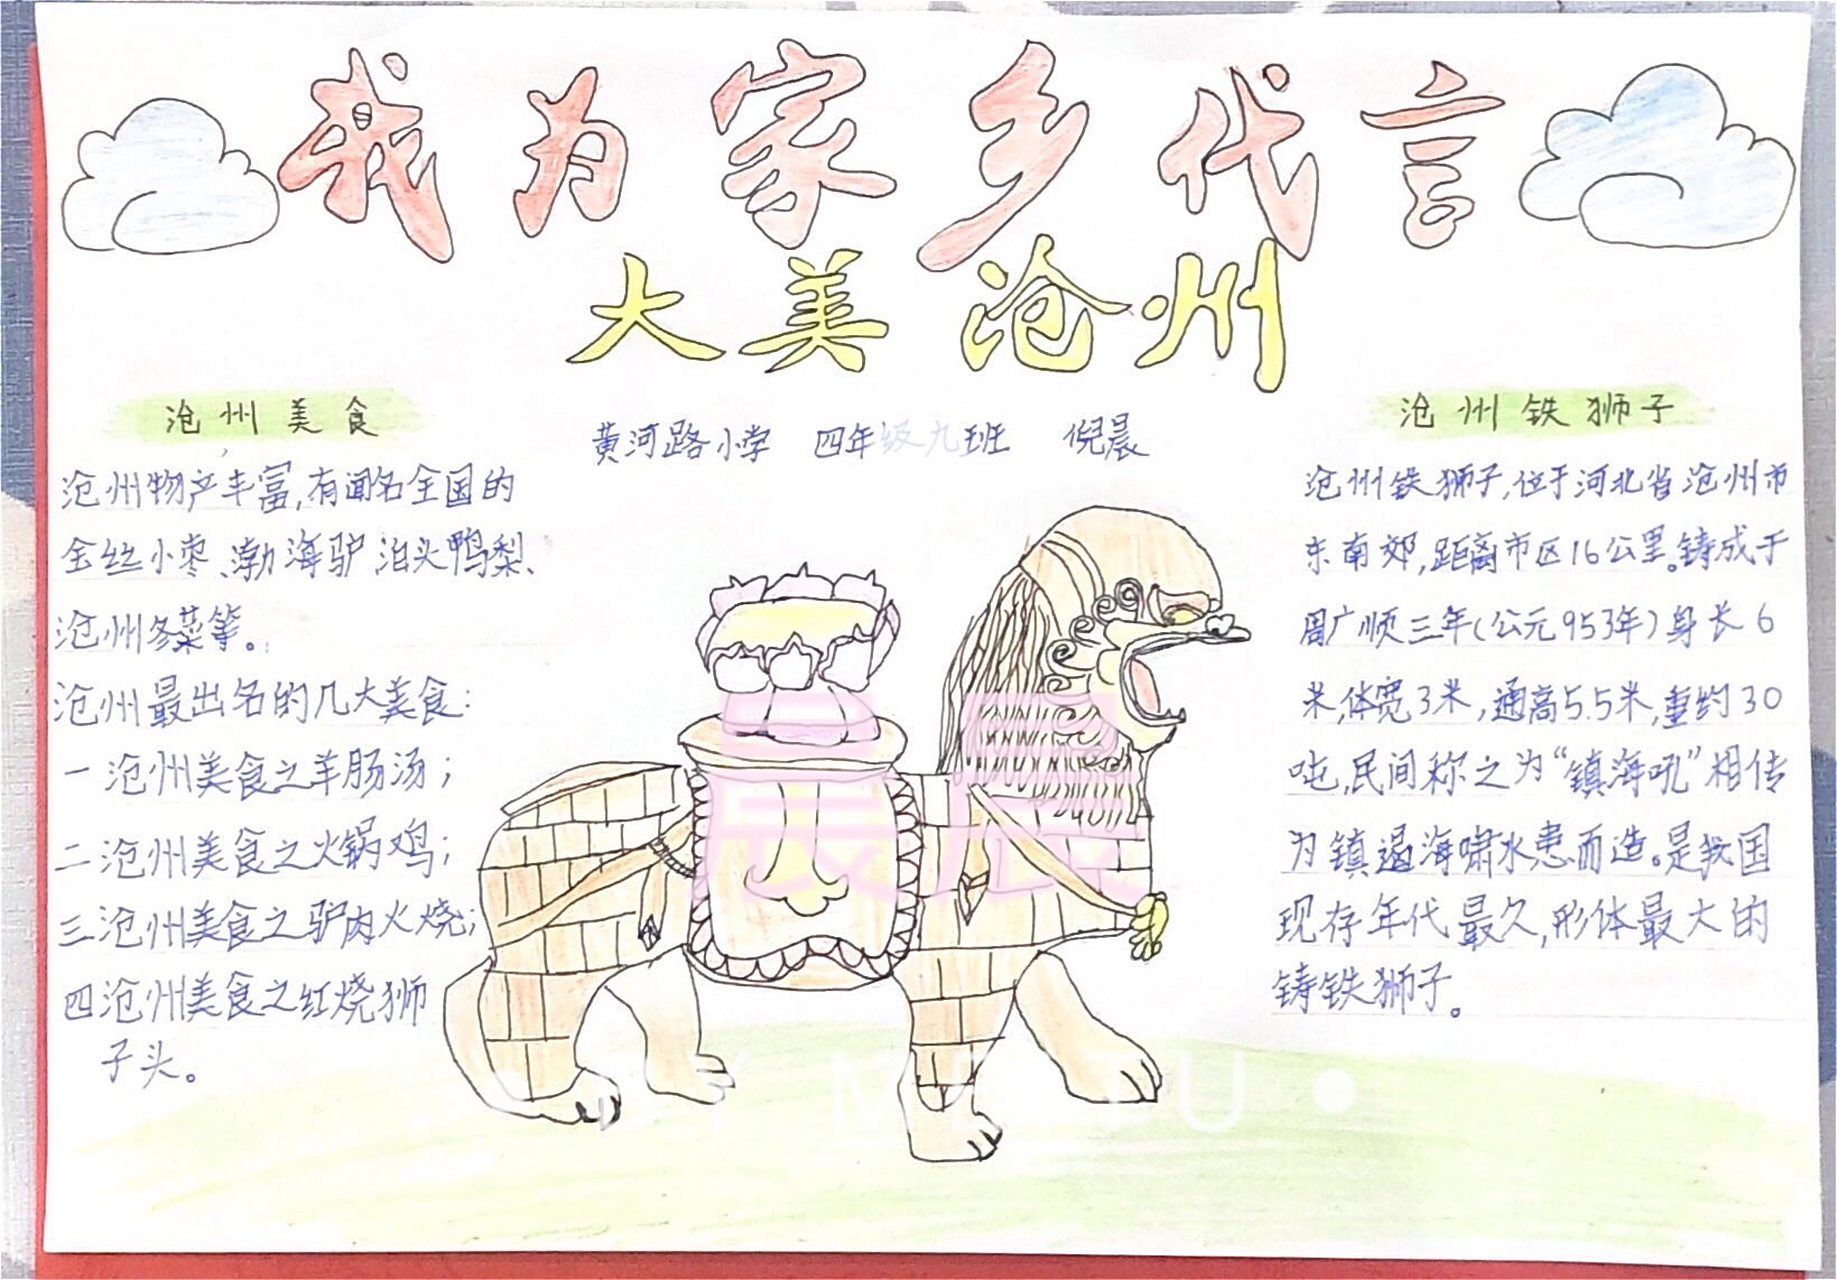 我为家乡代言
大美沧州
黄河路小学 四年级九班 倪晨
沧州美食
沧州物产丰富,有闻名全国的
金丝小枣、渤海驴、泊头鸭梨、
沧州冬菜等。
沧州最出名的几大美食:
一沧州美食之羊肠汤;
二沧州美食之火锅鸡;
三沧州美食之驴肉火烧;
四沧州美食之红烧狮
子头。
沧州铁狮子
沧州铁狮子,位于河北省沧州市
东南郊,距离市区16公里。铸成于
周广顺三年(公元953年)身长6
米,体宽3米,通高5.5米,重约30
吨,民间称之为“镇海吼”相传
为镇遏海啸水患而造。是我国
现存年代最久,形体最大的
铸铁狮子。
晨辰
BY MEITU